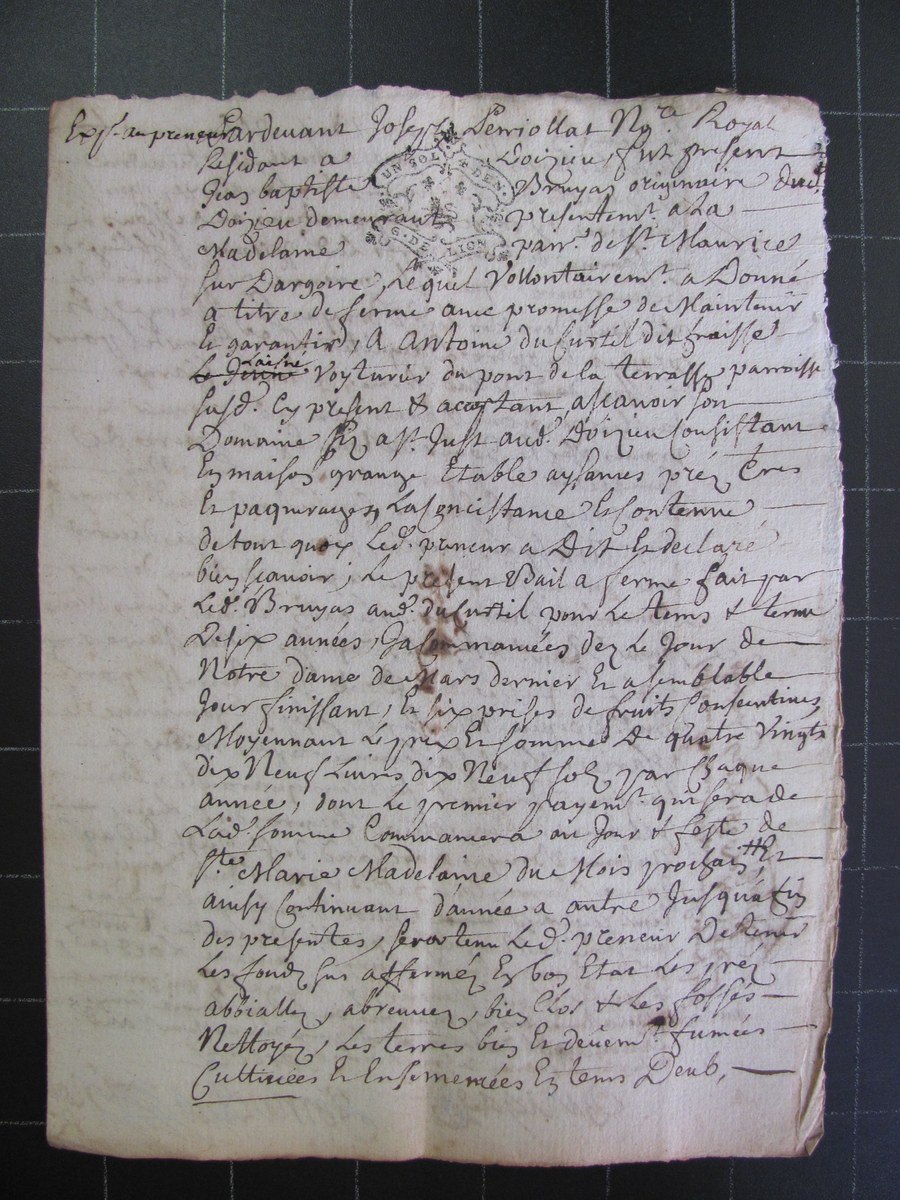 Exp.on au preneur
Pardevant Joseph Perriollat Nore. Royal
Residant a Doizieu, fut present
Jean baptiste Bruyas originaire dud.
Doizieu demeurant presentemt. a La
Madelaine parr. de St. Maurice
sur Dargoire, Lequel Vollontairemt. a Donné
a titre de ferme avec promesse de Maintenir
Et garantir, A Antoine du Curtil dit
le Jeune Laisné Voyturier du pont de la terrasse parroisse
susd. Cy present & acceptant, ascavoir son
Domaine Siz a St. Just aud. Doizieu Consistant
En maison grange Etable aysances préz Tres
Et paquerages, La Concistance Et Contenue
de tout quoy Led. preneur a Dit Et declaré
bien scavoir; Le present Bail a ferme fait par
Led. Bruyas aud. du Curtil pour Le tems & terme
De six années, Ja Commancées dez Le Jour de
Notre dame de Mars dernier Et a semblable
Jour finissant, Et six prises de fruits Consecutives
Moyennant Le prix Et somme De quatre Vingts
dix Neuf Livres dix Neuf solz par Chaque
année, dont Le premier payemt. qui sera de
Lad. somme Commancera au Jour & feste de
Ste. Marie Madelaine du Mois prochain, Et
ainsy Continuant d'année a autre Jusqu'a fin
des presentes, sera tenu Led. preneur De tenir
Les fondz sus affermés En bon Etat Les préz
abbiallez, abreuvez, bien Clos & Les fossés
Nettoyéz, Les terres bien Et deuemt. fumées
Cultivées Et Ensemencées En tems Deub,
UN SOL DEN.
G. DE LION